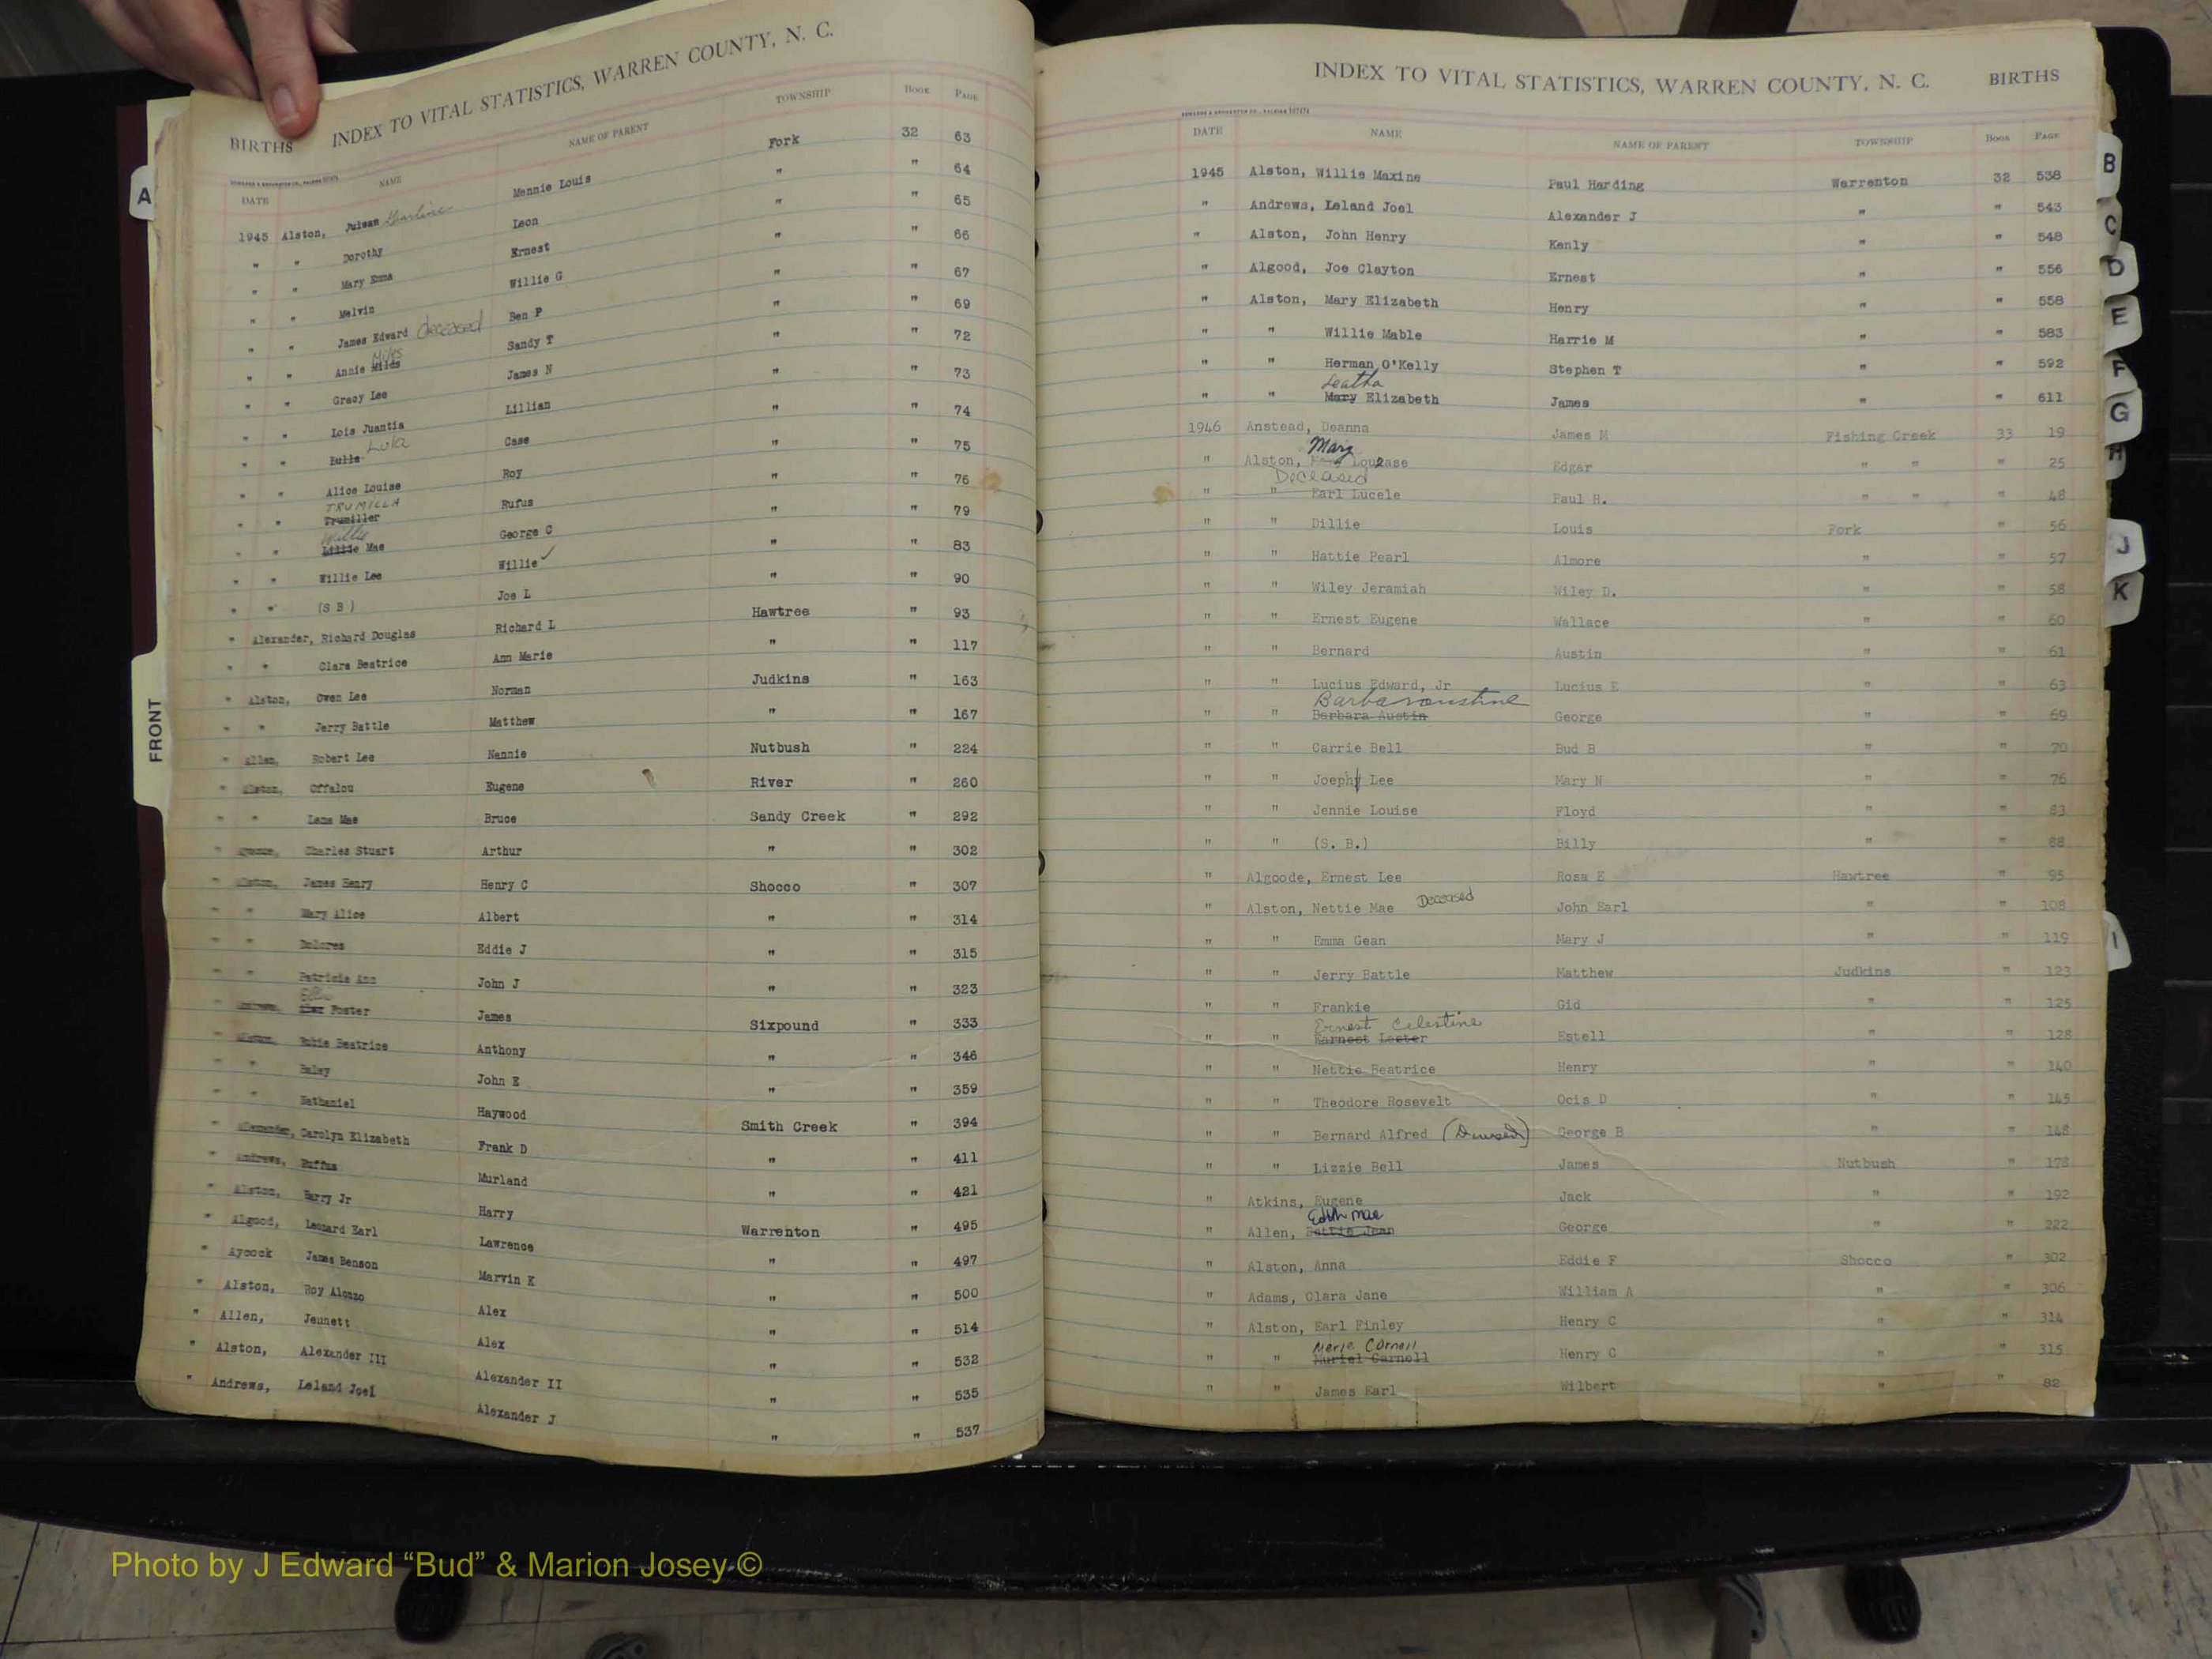 INDEX TO VITAL STATISTICS, WARREN COUNTY, N. C.
BIRTHS
DATE NAME NAME OF PARENT TOWNSHIP BOOK PAGE
1945 Alston, Mennie Louis Fork 32 63
" " Dorothy Leon " " 64
" " Mary Emma Ernest " " 65
" " Melvin Willie G " " 66
" " James Edward deceased Ben P " " 67
" " Annie Milds Miles Sandy T " " 69
" " Gracy Lee James N " " 72
" " Lois Juantia Lillian " " 73
" " Lula Case " " 74
" " Alice Louise Roy " " 75
" " Trumiller TRUMILLA Rufus " " 76
" " Lillie Mae Willie George C " " 79
" " Willie Lee Willie ✓ " " 83
" " (S B) Joe L " " 90
" Alexander, Richard Douglas Richard L Hawtree " 93
" " Clara Beatrice Ann Marie " " 117
" Alston, Owen Lee Norman Judkins " 163
" " Jerry Battle Matthew " " 167
" Allen, Robert Lee Nannie Nutbush " 224
" Alston, Offalou Eugene River " 260
" " Lena Mae Bruce Sandy Creek " 292
" Charles Stuart Arthur " " 302
" Alston, James Henry Henry C Shocco " 307
" " Mary Alice Albert " " 314
" " Dolores Eddie J " " 315
" " Patricia Ann John J " " 323
" Andrews, Foster James Sixpound " 333
" Alston, Beatrice Anthony " " 346
" " Haley John E " " 359
" " Nathaniel Haywood Smith Creek " 394
" Alexander, Carolyn Elizabeth Frank D " " 411
" Andrews, Ruffus Murland " " 421
" Alston, Harry Jr Harry Warrenton " 495
" Algood, Leonard Earl Lawrence " " 497
" Aycock James Benson Marvin K " " 500
" Alston, Roy Alonzo Alex " " 514
" Allen, Jeunett Alex " " 532
" Alston, Alexander III Alexander II " " 535
" Andrews, Leland Joel Alexander J " " 537
A
FRONT
INDEX TO VITAL STATISTICS, WARREN COUNTY, N. C. BIRTHS
DATE NAME NAME OF PARENT TOWNSHIP BOOK PAGE
1945 Alston, Willie Maxine Paul Harding Warrenton 32 538
" Andrews, Leland Joel Alexander J " " 543
" Alston, John Henry Kenly " " 548
" Algood, Joe Clayton Ernest " " 556
" Alston, Mary Elizabeth Henry " " 558
" " Willie Mable Harrie M " " 583
" " Herman O'Kelly Stephen T " " 592
Leatha
" " Mary Elizabeth James " " 611
1946 Anstead, Deanna James M Fishing Creek 33 19
Mary
" Alston, Louease Edgar " " " 25
Deceased
" " Earl Lucele Paul H. " " " 48
" " Dillie Louis Fork " 56
" " Hattie Pearl Almore " " 57
" " Wiley Jeramiah Wiley D. " " 58
" " Ernest Eugene Wallace " " 60
" " Bernard Austin " " 61
" " Lucius Edward, Jr Lucius E " " 63
Barbaraustine
" " Barbara Austin George " " 69
" " Carrie Bell Bud B " " 70
" " Joephy Lee Mary N " " 76
" " Jennie Louise Floyd " " 83
" " (S. B.) Billy " " 88
" Algoode, Ernest Lee Rosa E Hawtree " 95
" Alston, Nettie Mae Deceased John Earl " " 108
" " Emma Gean Mary J " " 119
" " Jerry Battle Matthew Judkins " 123
" " Frankie Gid " " 125
Ernest Celestine
" " Earnest Lester Estell " " 128
" " Nettie Beatrice Henry " " 140
" " Theodore Rosevelt Ocis D " " 145
" " Bernard Alfred (Deceased) George B " " 148
" " Lizzie Bell James Nutbush " 178
" Atkins, Eugene Jack " " 192
Edith Mae
" Allen, Bettie Jean George " " 222
" Alston, Anna Eddie F Shocco " 302
" Adams, Clara Jane William A " " 306
" Alston, Earl Finley Henry C " " 314
Merle Cornell
" " Muriel Carnell Henry C " " 315
" " James Earl Wilbert " " 82
B
C
D
E
F
G
H
J
K
I
Photo by J Edward “Bud” & Marion Josey ©